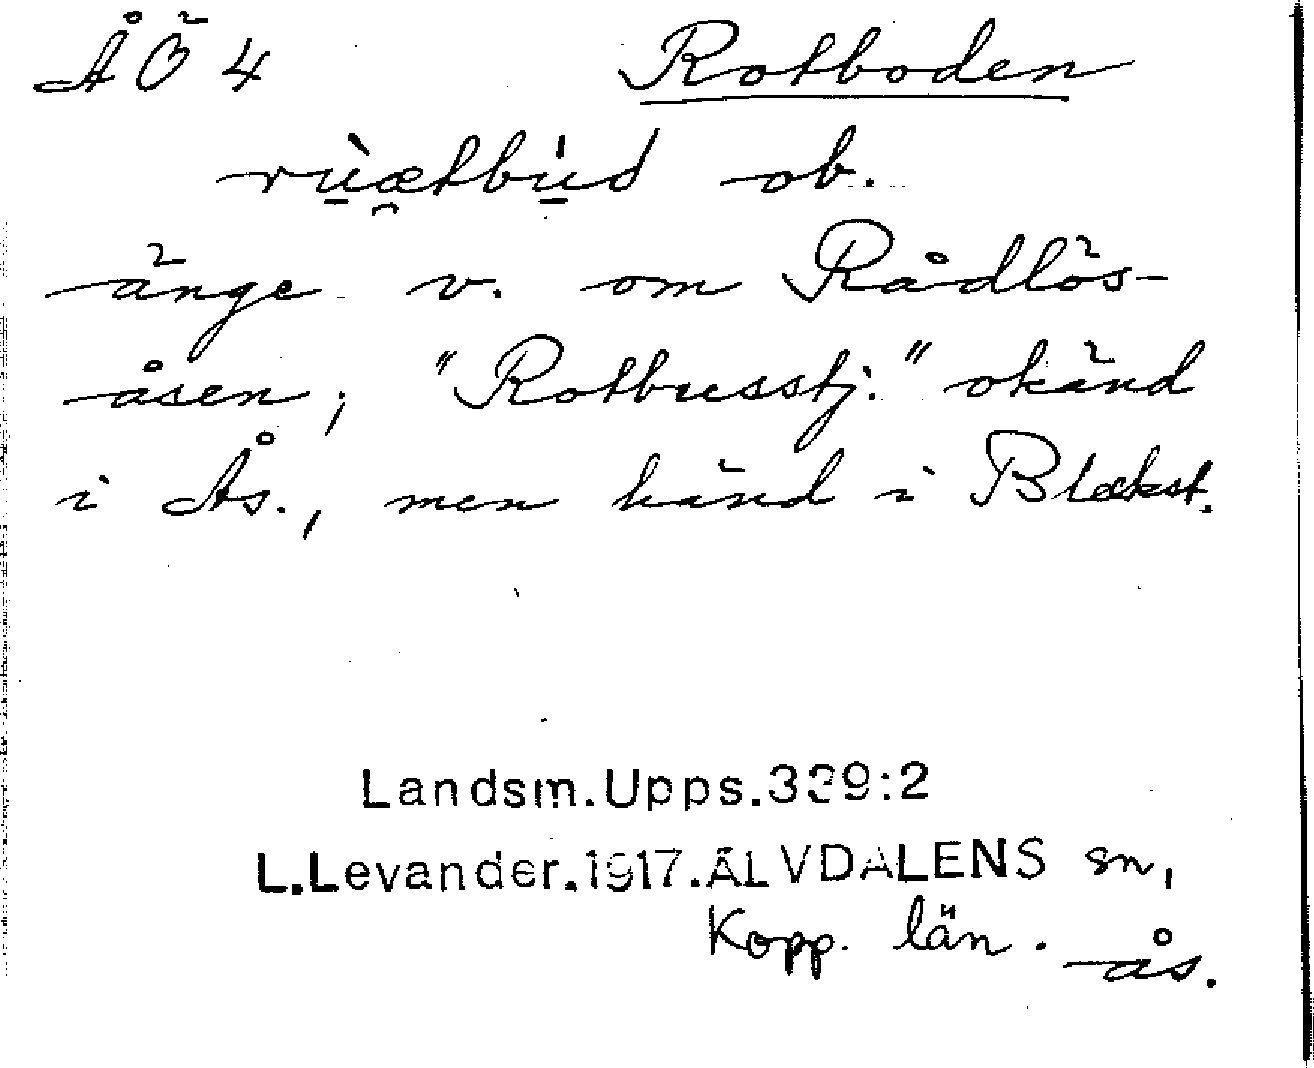 ÅÖ 4 Rotboden
rù̱æ̯tbu̱̍d ob.
änge v. om Rådlös-
åsen; "Rotbusstj." okänd
i Ås., men känd i Blækst.
Landsm.Upps.339:2
L.Levander.1917.ÄLVDALENS sn,
Kopp. län. ås.